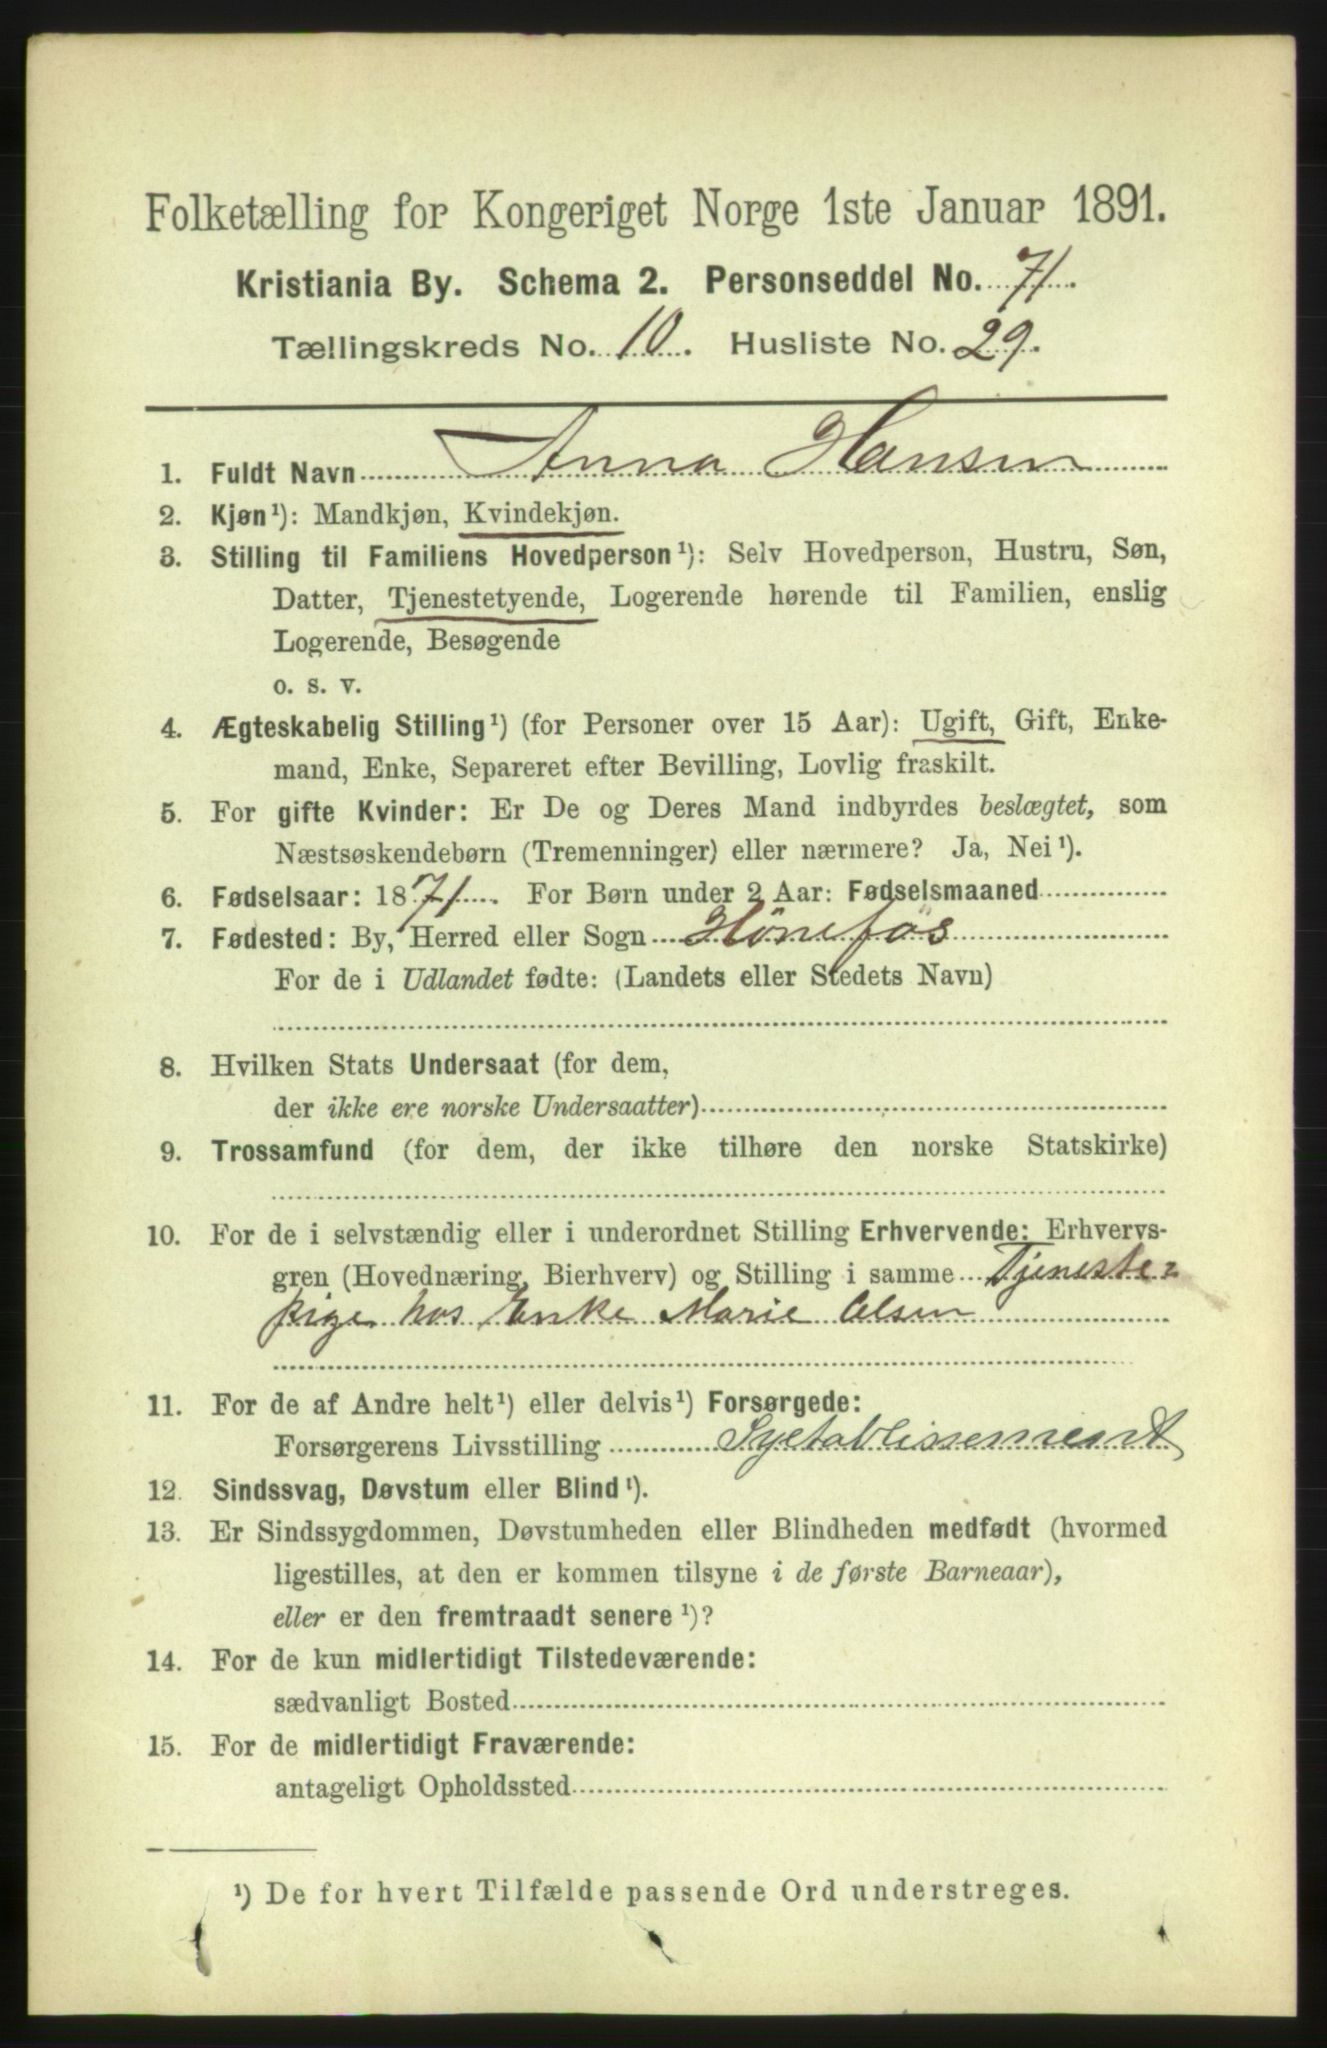 Folketælling for Kongeriget Norge 1ste Januar 1891.
Kristiania By. Schema 2. Personseddel No. 71.
Tællingskreds No. 10. Husliste No. 29.
1. Fuldt Navn Anna Hansen
2. Kjøn¹): Mandkjøn, Kvindekjøn.
3. Stilling til Familiens Hovedperson¹): Selv Hovedperson, Hustru, Søn,
Datter, Tjenestetyende, Logerende hørende til Familien, enslig
Logerende, Besøgende
o. s. v.
4. Ægteskabelig Stilling¹) (for Personer over 15 Aar): Ugift, Gift, Enke-
mand, Enke, Separeret efter Bevilling, Lovlig fraskilt.
5. For gifte Kvinder: Er De og Deres Mand indbyrdes beslægtet, som
Næstsøskendebørn (Tremenninger) eller nærmere? Ja, Nei¹).
6. Fødselsaar: 1871. For Børn under 2 Aar: Fødselsmaaned
7. Fødested: By, Herred eller Sogn Hönefos
For de i Udlandet fødte: (Landets eller Stedets Navn)
8. Hvilken Stats Undersaat (for dem,
der ikke ere norske Undersaatter)
9. Trossamfund (for dem, der ikke tilhøre den norske Statskirke)
10. For de i selvstændig eller i underordnet Stilling Erhvervende: Erhvervs-
gren (Hovednæring, Bierhverv) og Stilling i samme Tjeneste=
pige hos Enke Marie Olsen
11. For de af Andre helt¹) eller delvis¹) Forsørgede:
Forsørgerens Livsstilling Syetablissement
12. Sindssvag, Døvstum eller Blind¹).
13. Er Sindssygdommen, Døvstumheden eller Blindheden medfødt (hvormed
ligestilles, at den er kommen tilsyne i de første Barneaar),
eller er den fremtraadt senere¹)?
14. For de kun midlertidigt Tilstedeværende:
sædvanligt Bosted
15. For de midlertidigt Fraværende:
antageligt Opholdssted
¹) De for hvert Tilfælde passende Ord understreges.